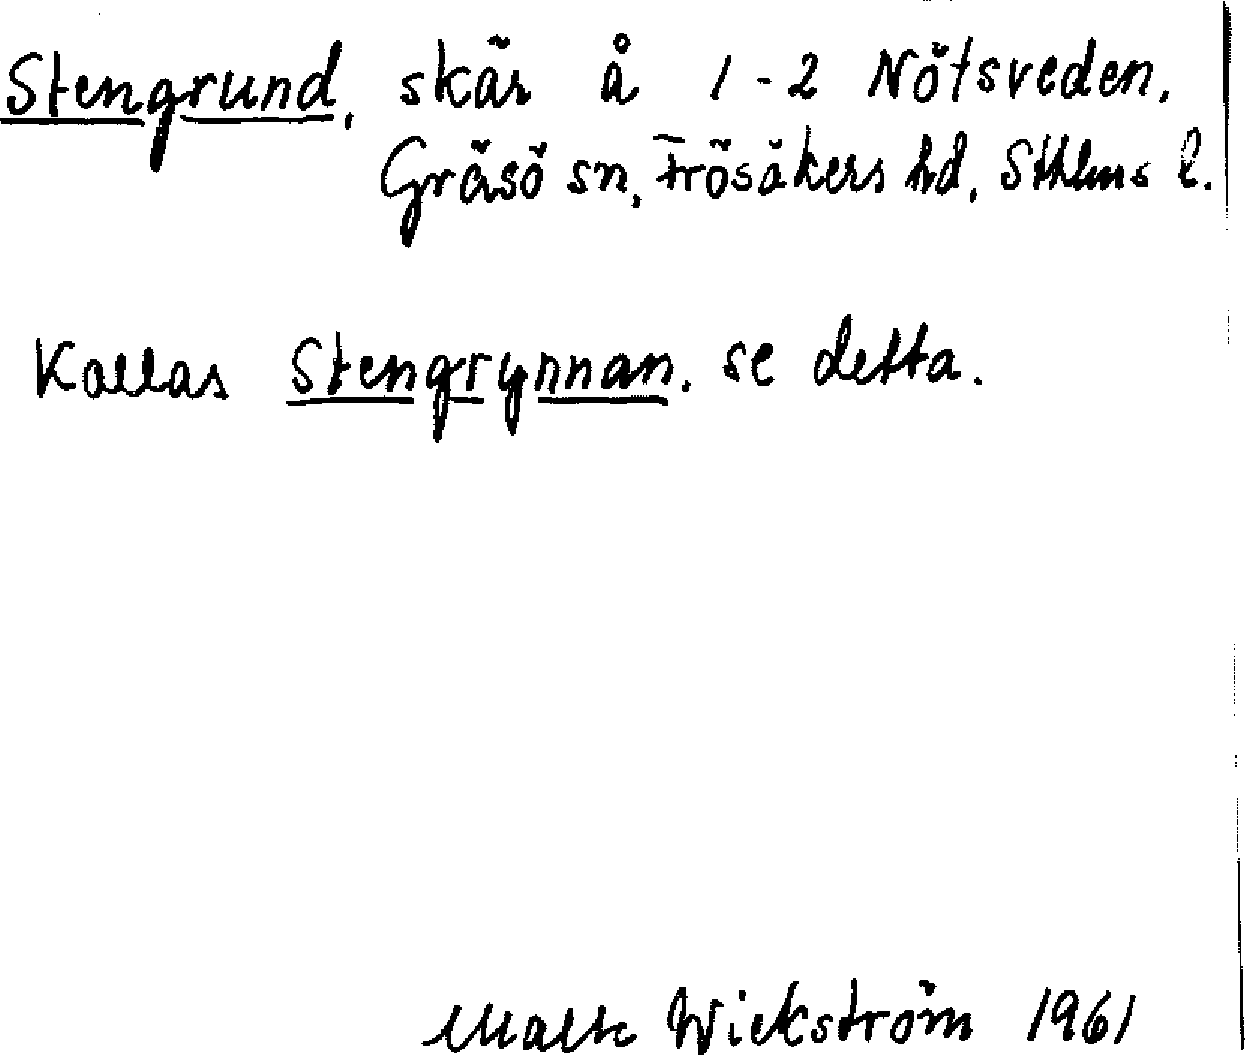 Stengrund, skär å 1-2 Nötsveden,
Gräsö sn, Frösåkers hd, Sthlms l.
Kallas Stengrynnan. se detta.
Malte Wickström 1961